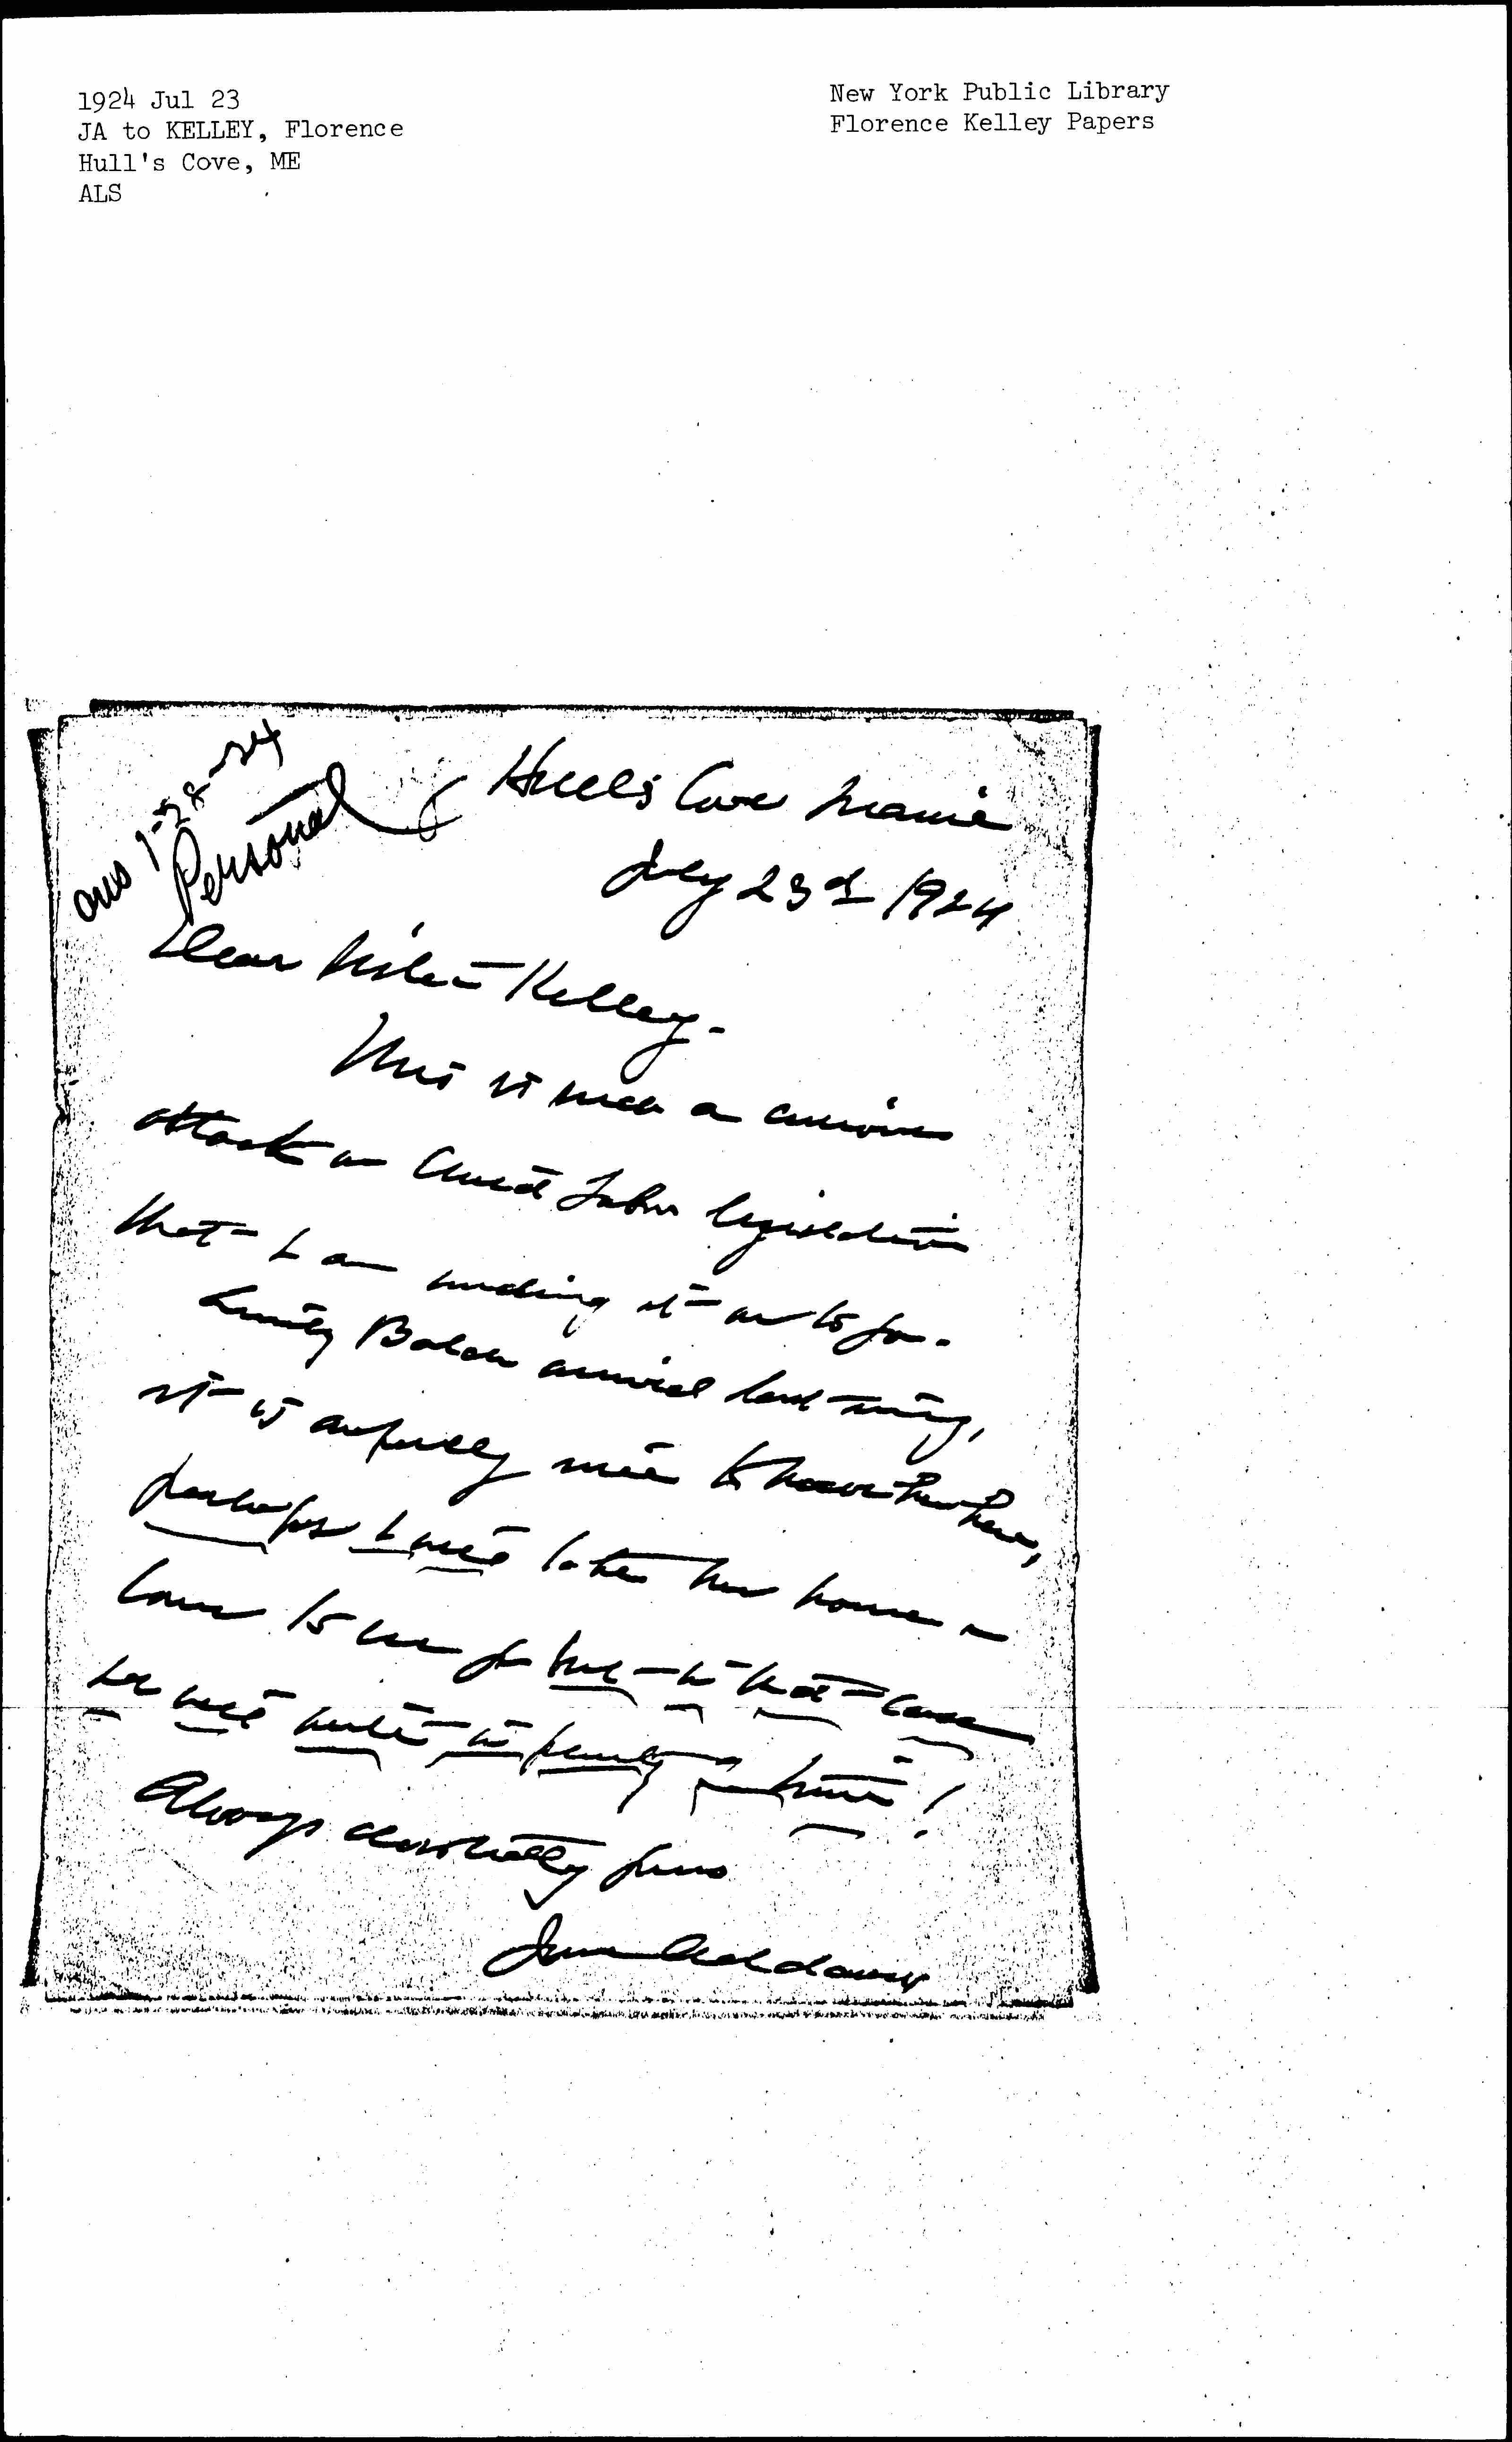 1924 Jul 23
JA to KELLEY, Florence
Hull's Cove, ME
ALS
New York Public Library
Florence Kelley Papers
ans 7-28-24
Personal
Hull's Cove Maine
July 23d 1924
Dear Sister Kelley.
This is such a curious
attack on Child Labor legislation
that I am sending it on to you.
Emily Balch arrived last evening,
it is awfully nice to have her here,
perhaps I will take her home
to see you but in that case
we will write in plenty of time!
Always devotedly yours
Jane Addams